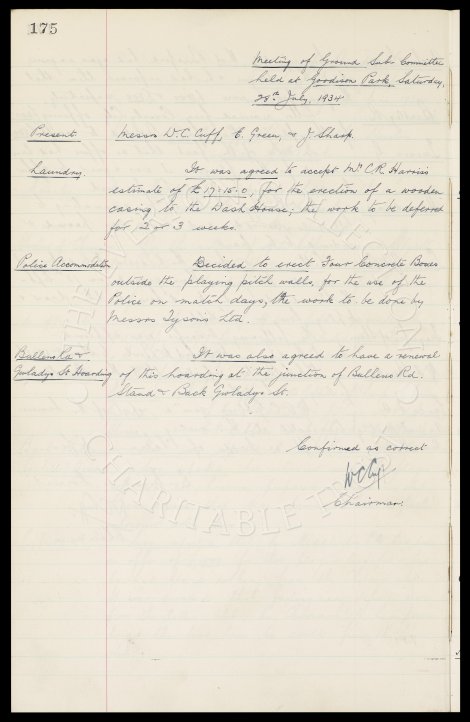 175
Meeting of Ground Sub. Committee
held at Goodison Park, Saturday,
28th July, 1934
Present. Messrs W. C. Cuff, E. Green, & J. Sharp.
Laundry. It was agreed to accept Mr C. R. Harriss
estimate of £17-15-0, for the erection of a wooden
casing to the Wash House; the work to be deferred
for 2 or 3 weeks.
Police Accommodation Decided to erect Four Concrete Boxes
outside the playing pitch walls, for the use of the
Police on match days, the work to be done by
Messrs Tysons Ltd.
Bullens Rd & It was also agreed to have a renewal
Gwladys St Hoarding of this hoarding at the junction of Bullens Rd.
Stand & Back Gwladys St.
Confirmed as correct
W C Cuff
Chairman.
CHARITABLE